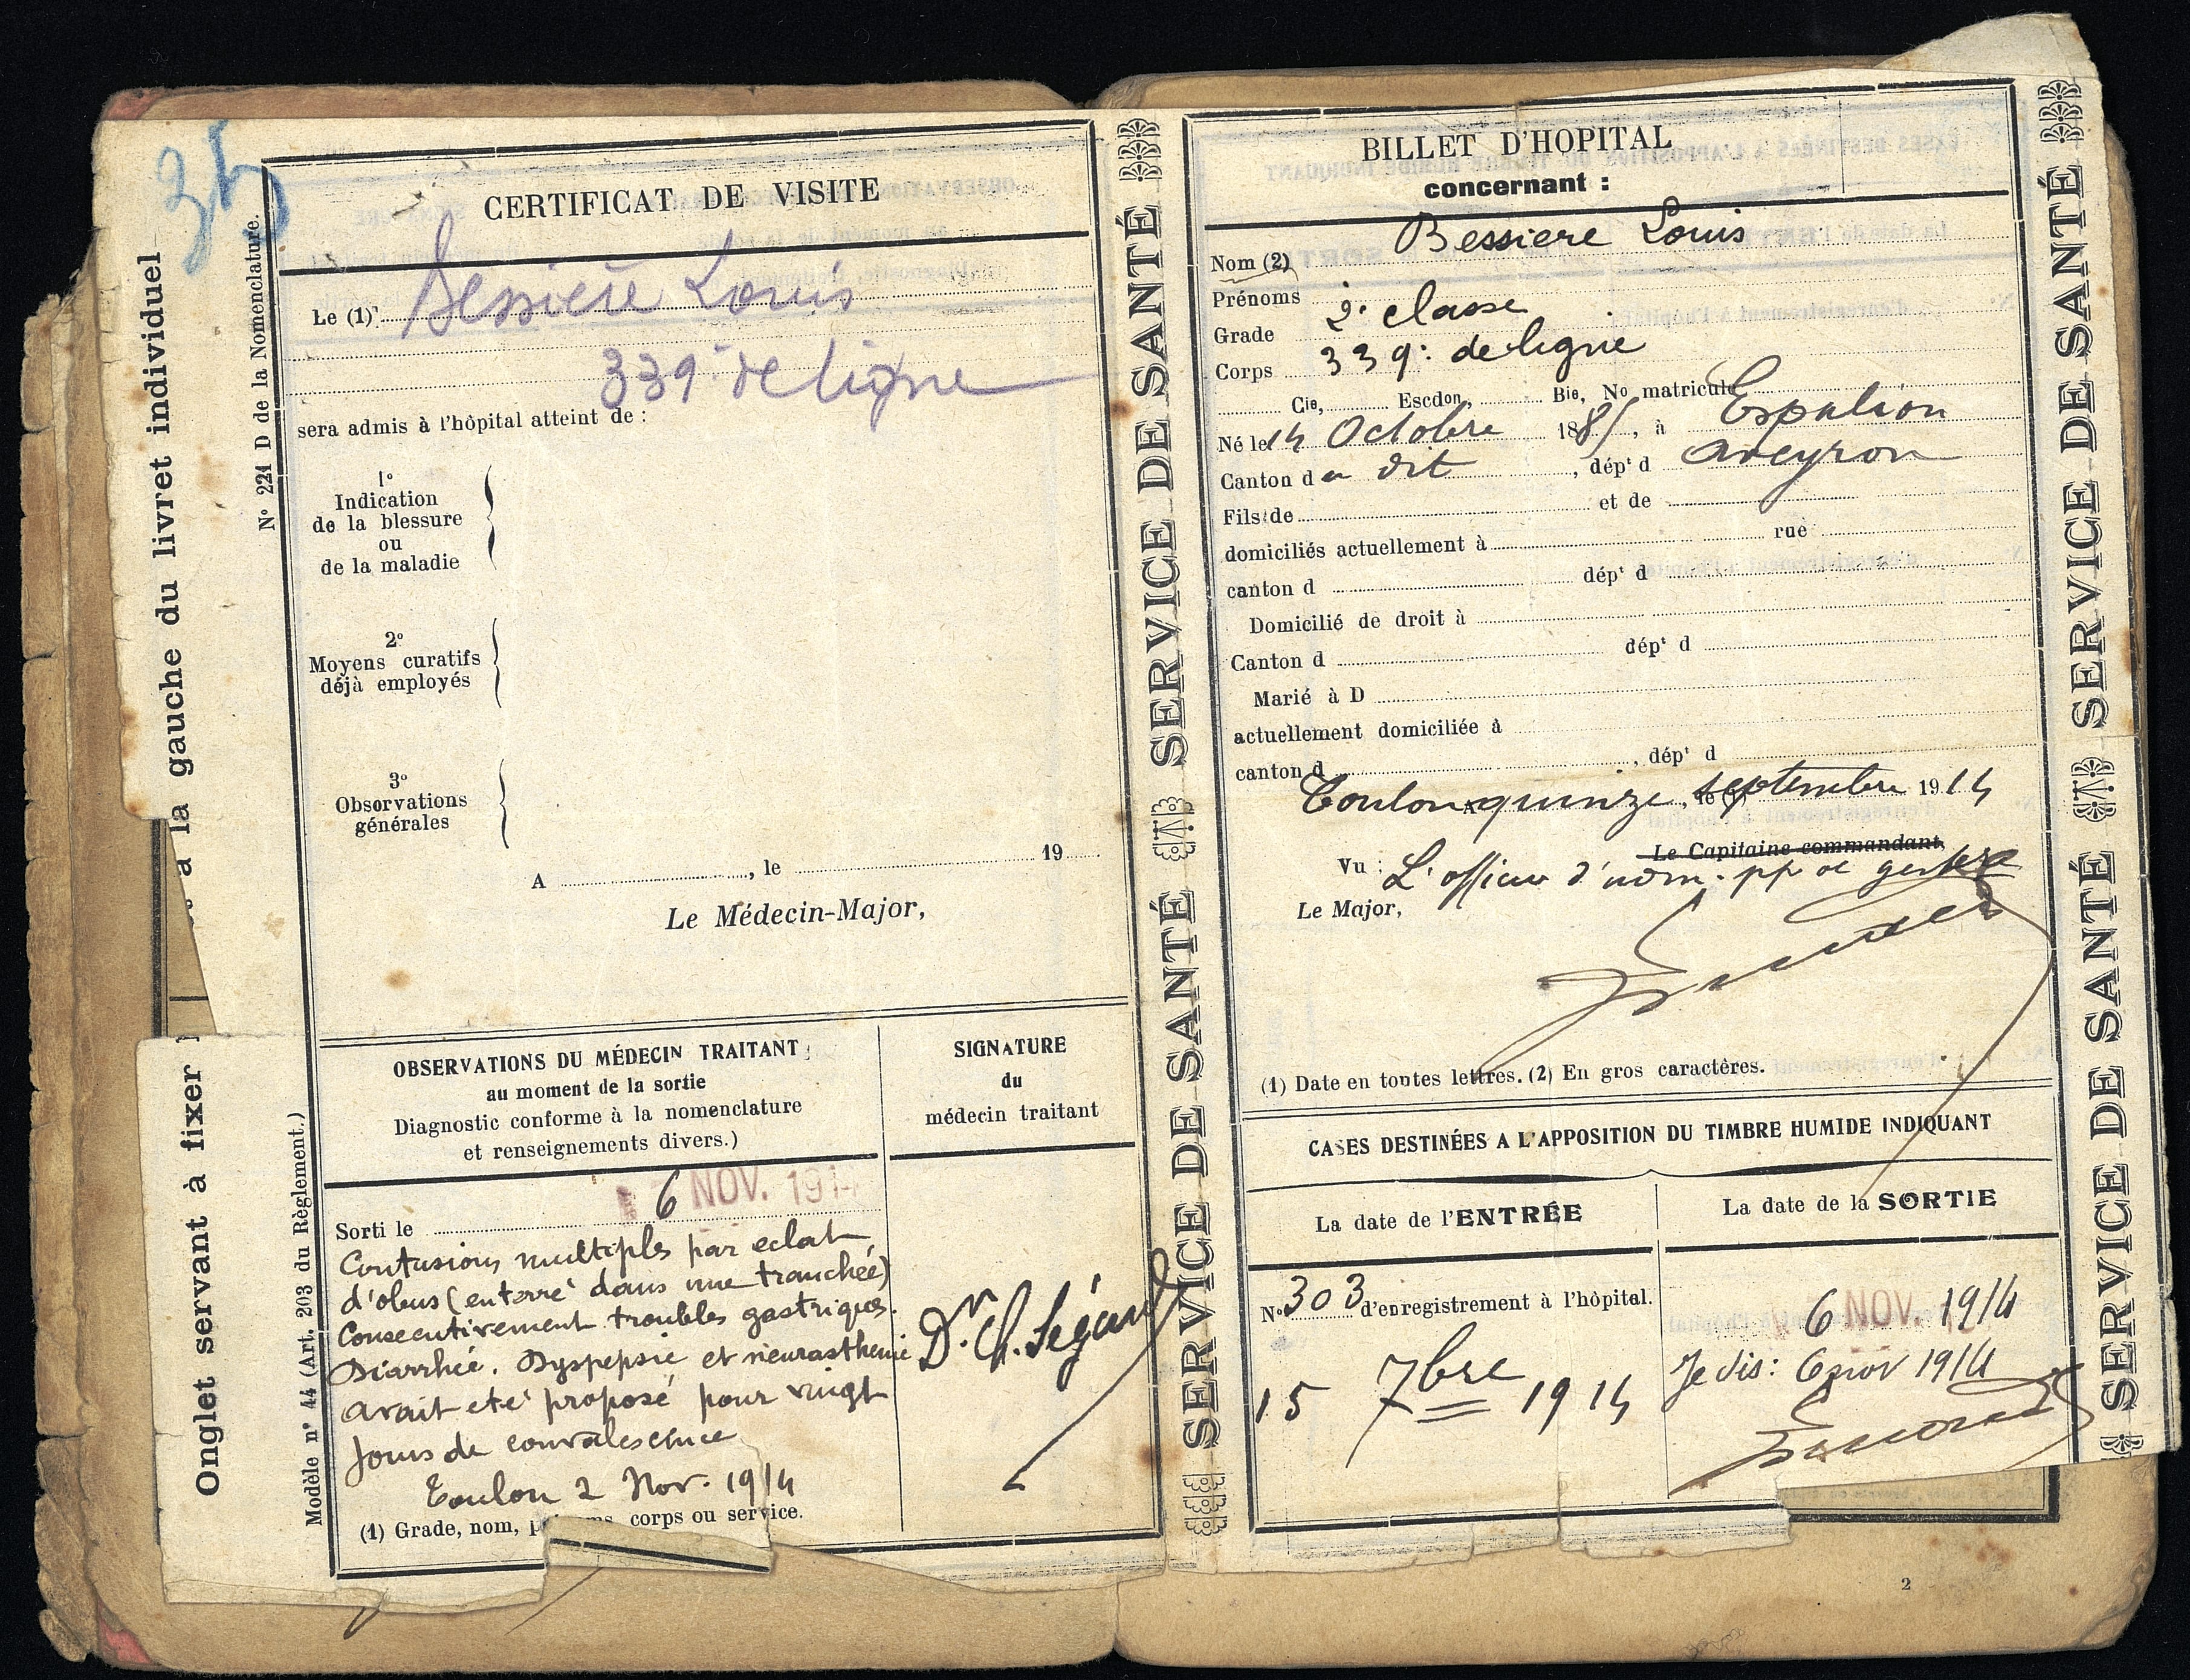 35
Onglet servant à fixer
à la gauche du livret individuel
N° 221 D de la Nomenclature.
Modèle n° 44 (Art. 203 du Règlement.)
CERTIFICAT DE VISITE
Le (1) Bessière Louis
339e de ligne
sera admis à l'hôpital atteint de :
1°
Indication
de la blessure
ou
de la maladie
2°
Moyens curatifs
déjà employés
3°
Observations
générales
A , le 19
Le Médecin-Major,
OBSERVATIONS DU MÉDECIN TRAITANT
au moment de la sortie
Diagnostic conforme à la nomenclature
et renseignements divers.)
SIGNATURE
du
médecin traitant
Sorti le 6 NOV. 191
Contusions multiples par eclat
d'obus (enterré dans une tranchée)
Consecutivement troubles gastriques.
Diarrhée. Dyspepsie et neurasthenie
avait eté proposé pour vingt
jours de convalescence
Toulon 2 Nov. 1914
Dr Ch. Ségard
(1) Grade, nom, corps ou service.
SERVICE DE SANTÉ
SERVICE DE SANTÉ
BILLET D'HOPITAL
concernant :
Nom (2) Bessiere Louis
Prénoms
Grade 2e classe
Corps 339e de ligne
Cie, Escdon, Bie, No matricule
Né le 14 Octobre 188 , à Espalion
Canton d u dit , dépt d Aveyron
Fils de et de
domiciliés actuellement à rue
canton d dépt d
Domicilié de droit à
Canton d dépt d
Marié à D
actuellement domiciliée à
canton d , dépt d
A Toulon quinze , le (1) septembre 1914
Le Capitaine commandant,
Vu : L'officier d'adm. pp al gest
Le Major,
(1) Date en toutes lettres. (2) En gros caractères.
CASES DESTINÉES A L'APPOSITION DU TIMBRE HUMIDE INDIQUANT
La date de l'ENTRÉE
La date de la SORTIE
No 303 d'enregistrement à l'hôpital.
15 7bre 1914
6 NOV. 1914
Je dis : 6 nov 1914
SERVICE DE SANTÉ
SERVICE DE SANTÉ
2